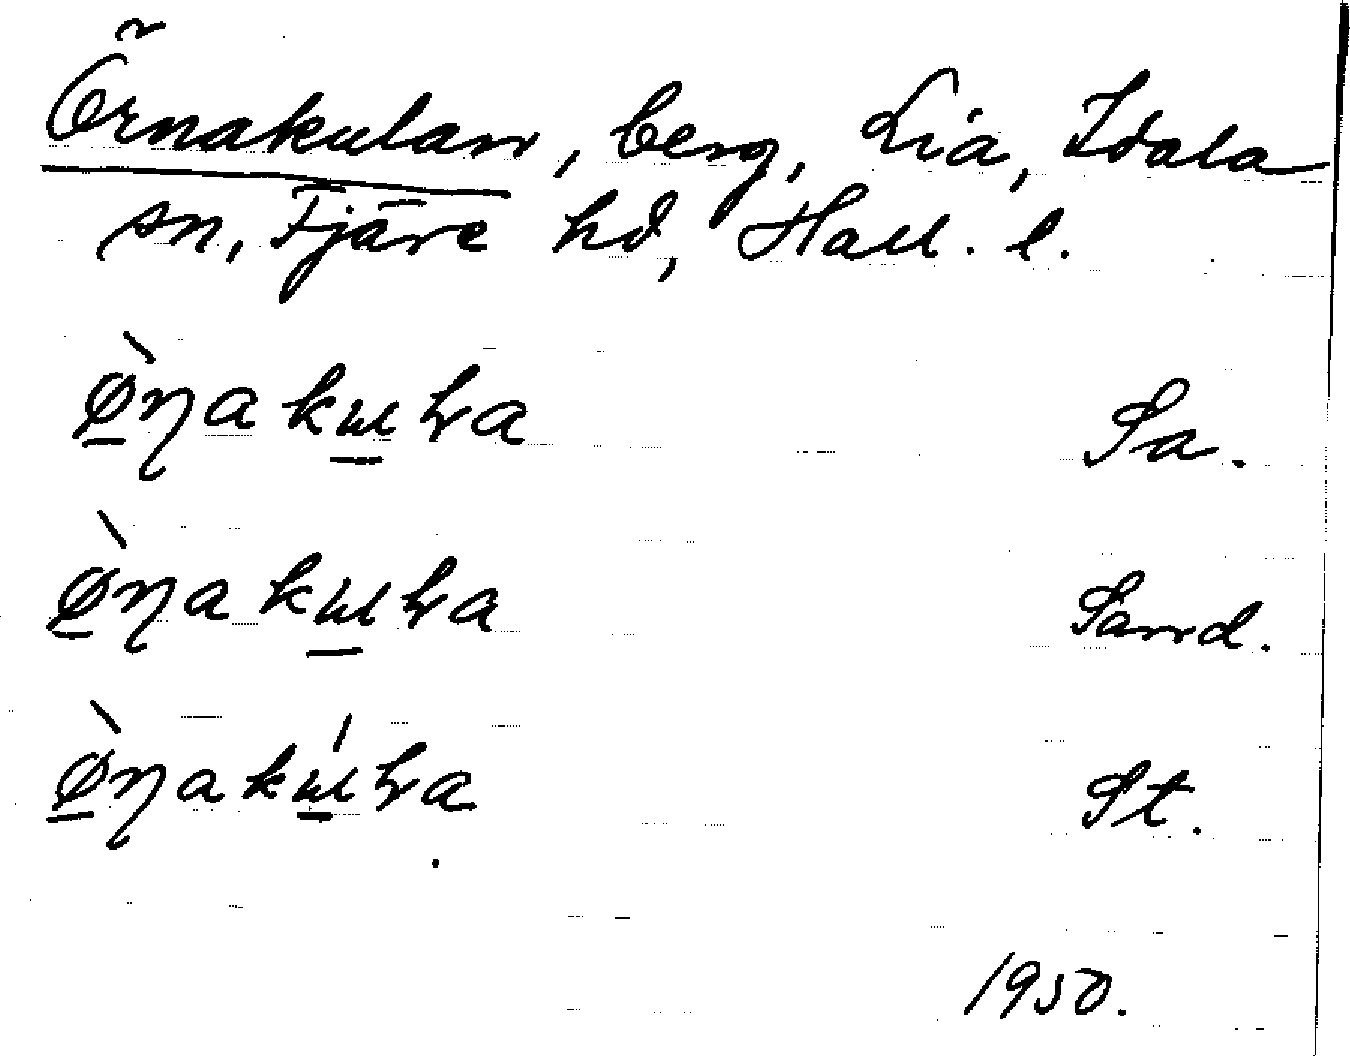 Örnakulan, berg, Lia, Idala
sn, Fjäre hd, Hall. l.
ø̠̀ŋakɯ̠ƚra Sa.
ø̠̀ŋakɯ̠ƚra Sand.
ø̠̀ŋakɯ̠́ƚra St.
1950.